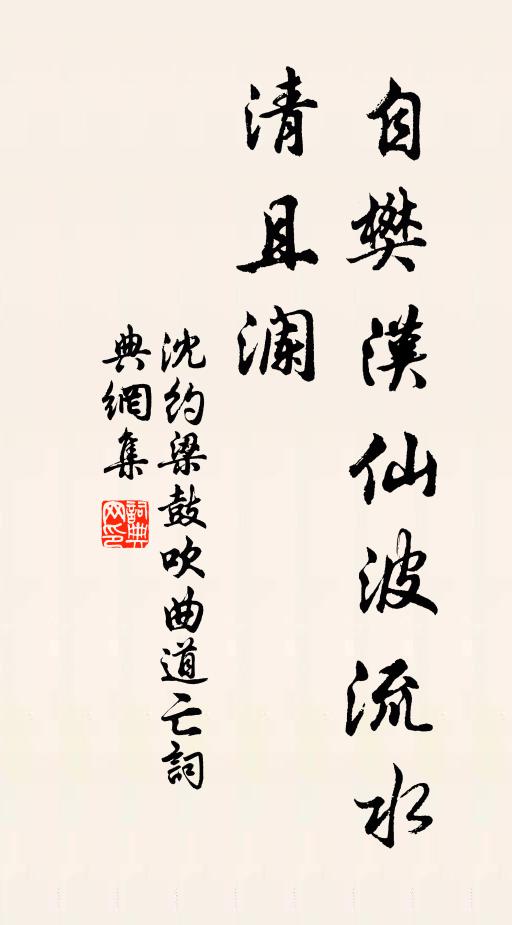 自樊漢仙波流水
清且澜
沈约梁鼓吹曲道亡詞
典網集
詞典网印